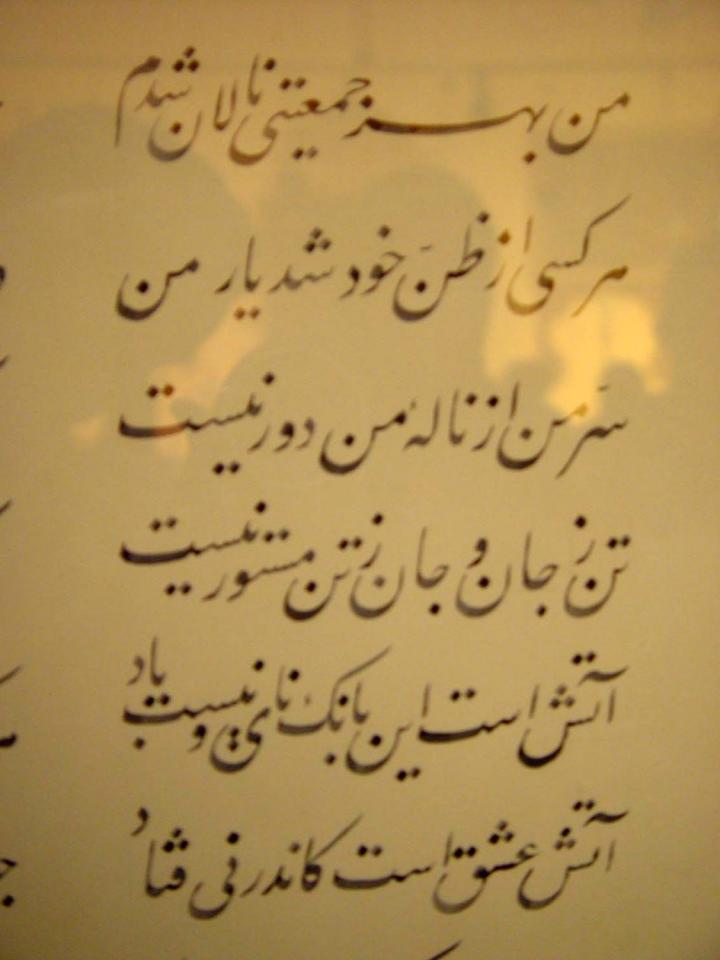 من بهر جمعیتی نالان شدم
هر کسی از ظنَ خود شد یار من
سَر من از نالهٔ من دور نیست
تن ز جان و جان ز تن مستور نیست
آتش است این بانگ نای و نیست باد
آتش عشق است کاندر نی فتاد